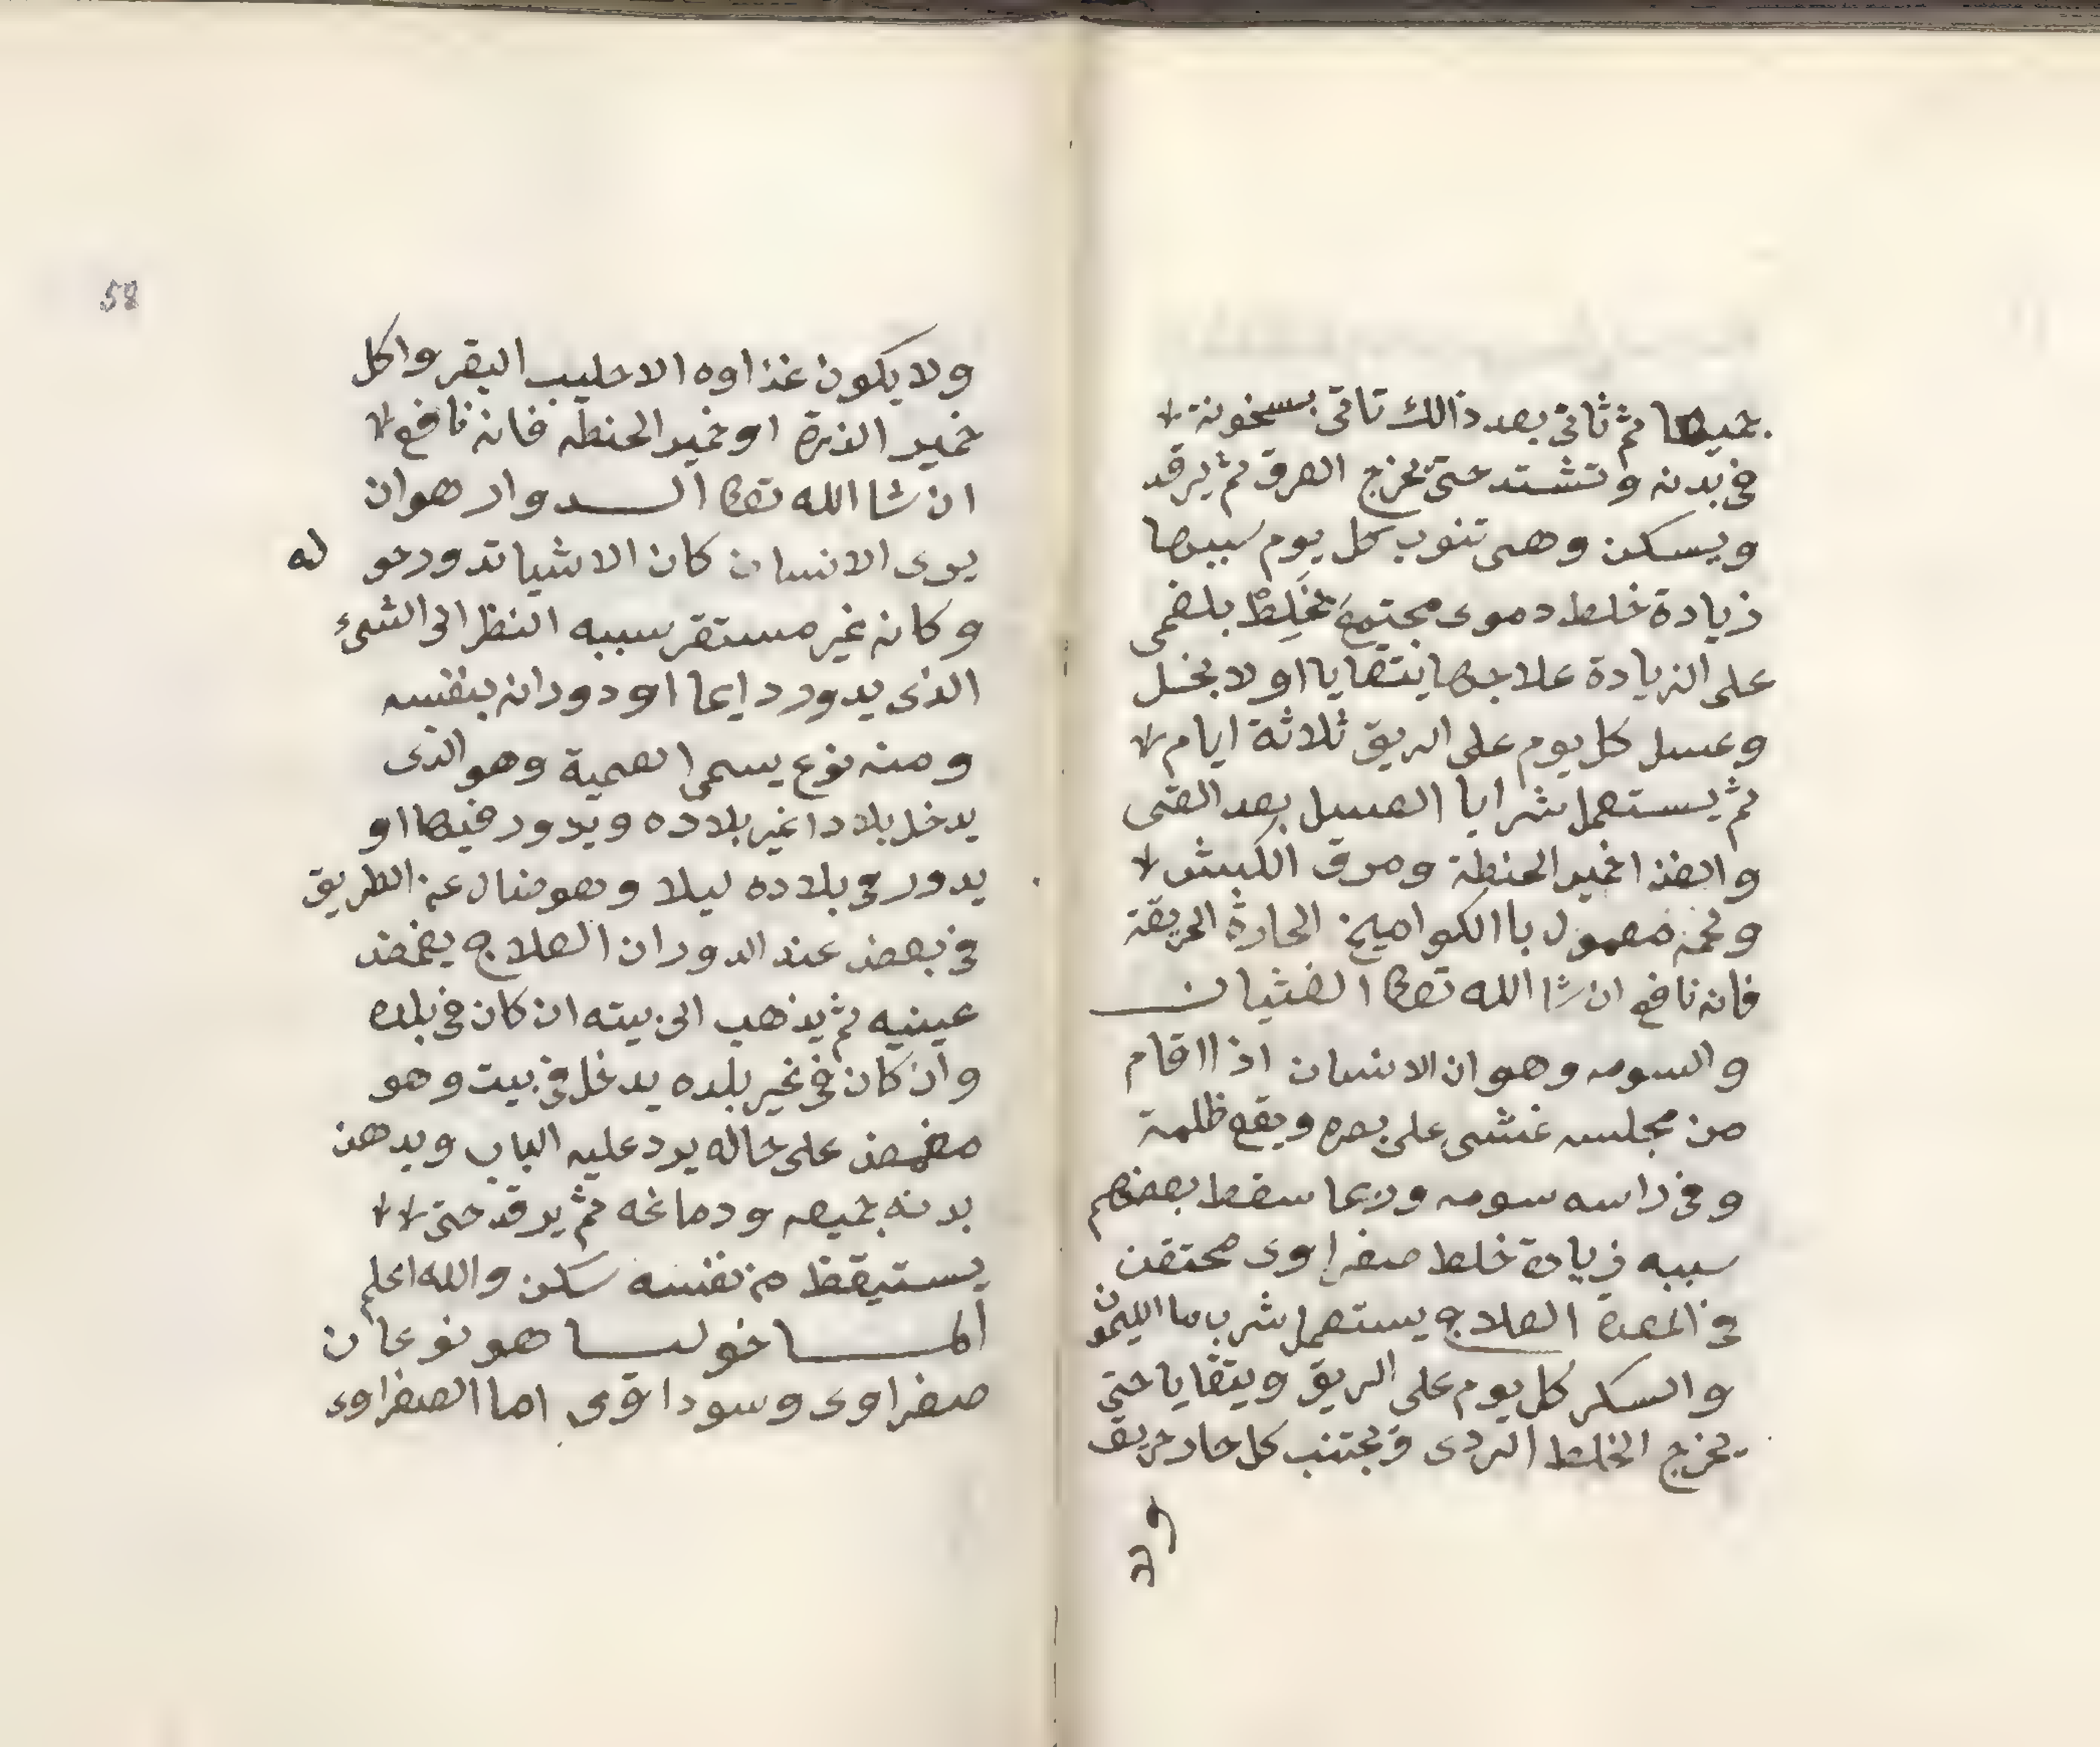 بحميها ثم ثاتى بعد ذالك تاتى بسخونة
في بدنه وتشتد حتى يخرج العرق ثم يرقد
ويسكن وهى تنوب كل يوم سببها
زيادة خلط دموى مجتمع بخلط بلغمى
على الزيادة علاجها يتقايا اولا بخل
وعسل كل يوم على الريق ثلاثة ايام
ثم يستعمل شرابا العسل بعد القى
والغذا خمير الحنطة ومرق الكبش
ولحمه معمول باالكواميخ الحارة الحريقة
فانه نافع ان شا الله تعالى الغثيان
والسومه وهو ان الانسان اذا اقام
من مجلسه غشى على بصره ويقع ظلمة
وفي راسه سومه وربما سقط بعضهم
سببه زيادة خلط صفراوى محتقن
في المعدة العلاج يستعمل شرب ما الليمون
والسكر كل يوم على الريق ويتقايا حتى
يخرج الخلط الردى ويجتنب كل حار حريف
ولا
58
ولا يكون غذاوه الا حليب البقر واكل
خمير الذرة او خمير الحنطه فانه نافع
ان شا الله تعالى الدوار هو ان
يرى الانسان كان الاشيا تدور حو له
وكانه غير مستقر سببه النظر الى الشئ
الذى يدور دايما او دورانه بنفسه
ومنه نوع يسمى العمية وهو الذى
يدخل بلادا غير بلاده ويدور فيها او
يدور في بلاده ليلا وهو ضال عن الطريق
في بعض عند الدوران العلاج يغمض
عينيه ثم يذهب الى بيته ان كان في بلده
وان كان في غير بلده يدخل في بيت وهو
مغمض على حاله يرد عليه الباب ويدهن
بدنه جميعه ودماغه ثم يرقد حتى
يستيقظ من نفسه سكن والله اعلم
الماخوليا هو نوعان
صفراوى وسوداوى اما الصفراوى